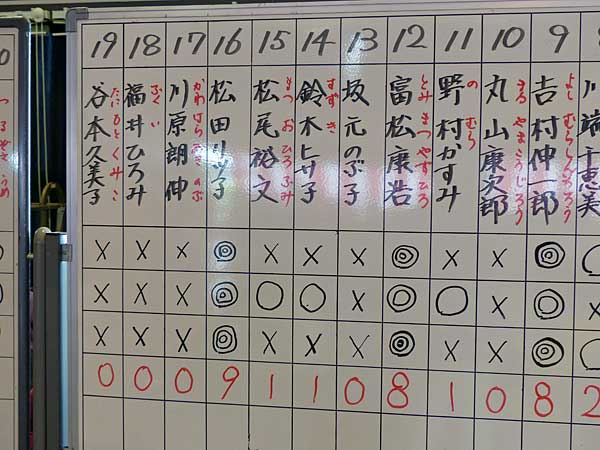 19 18 17 16 15 14 13 12 11 10 9
谷本久美子 たにもと くみこ
福井ひろみ ふくい
川原朗伸 かわはら
松田リツ子
松尾裕文 まつお ひろふみ
鈴木トサ子 すずき
坂元のぶ子
富松康浩 とみまつ やすひろ
野村かすみ のむら
丸山康次郎 まるやま こうじろう
吉村伸一郎 よしむら
川端千恵美
× × × ◎ × × × ◎ × × ◎ ○
× × × ◎ ○ ○ × ◎ ○ × ◎ ×
× × × ◎ × × × ◎ × × ◎ ○
0 0 0 9 1 1 0 8 1 0 8 2